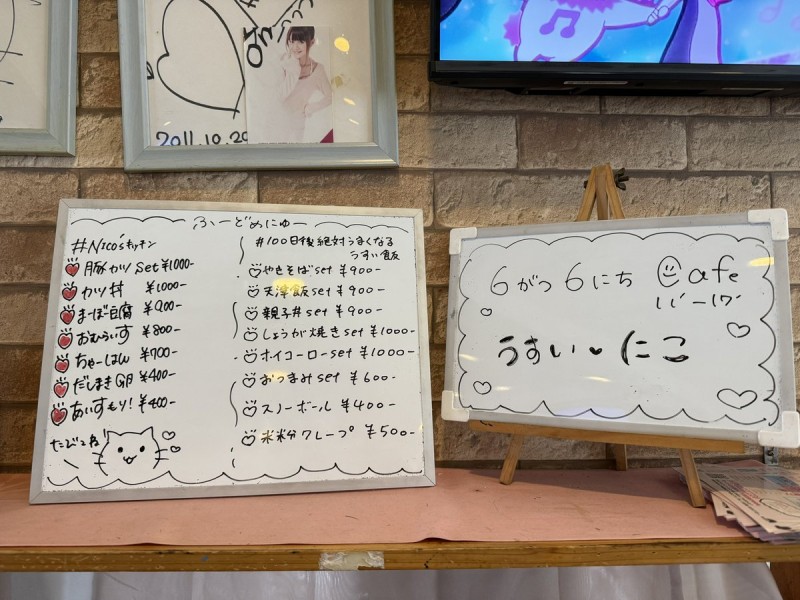 2011.10.20
ふーどめにゅー
#Nico'sキッチン
豚カツ set ¥1000-
カツ丼 ¥1000-
まーぼー豆腐 ¥900-
おむらいす ¥800-
ちゃーはん ¥700-
だしまき卵 ¥400-
あいすもり! ¥400-
たびょね
#100日後絶対うまくなる
うすい飯
やきそば set ¥900-
天津飯 set ¥900-
親子丼 set ¥900-
しょうが焼き set ¥1000-
ホイコーロー set ¥1000-
おつまみ set ¥600-
スノーボール ¥400-
米粉クレープ ¥500-
6がつ6にち @afe
うすい♥にこ